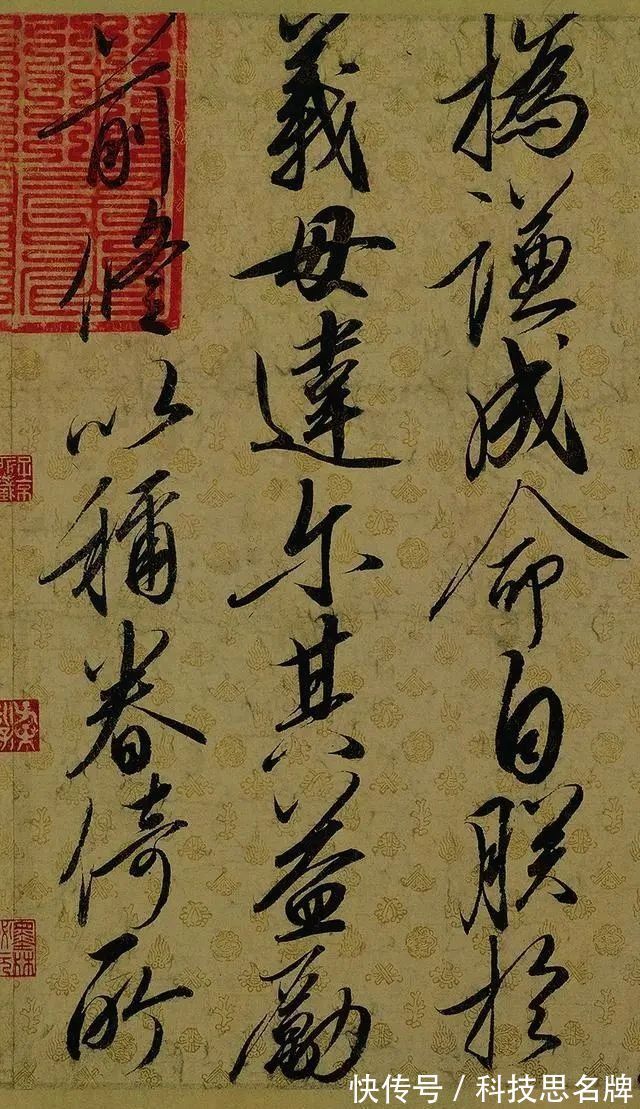 撝謙成命自朕於
義毋違尔其益勵
前脩以稱眷倚所
快传号 / 科技思名牌